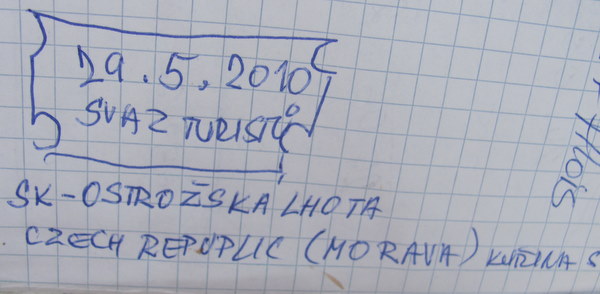 29.5.2010
SVAZ TURISTŮ
SK-OSTROŽSKA LHOTA
CZECH REPUPLIC (MORAVA)